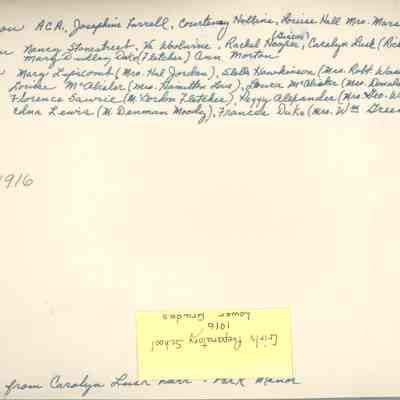 A.C.A., Josephine Farrell, Courtenay Hollins, Louise Hall Mrs. Mars
Nancy Stonestreet, Va Woolwine, Rachel Haynes (Green), Carolyn Lusk (Rich
Mary Dudley Dale (Fletcher) Ann Morton
Mary Lipscomb (Mrs. Hal Jordan), Stella Hawkinson (Mrs. Robt. Wase
Louise McAlester (Mrs. Hamilton Love), Laura McAlester (Mrs. Donald
Florence Sawrie (M. Gordon Fletcher), Peggy Alexander (Mrs. Geo. W
Edna Lewis (M. Denman Moody), Frances Duke (Mrs. Wm Green
1916
Girls Preparatory School
1916
Lower Grades
from Carolyn Lusk - Park Manor